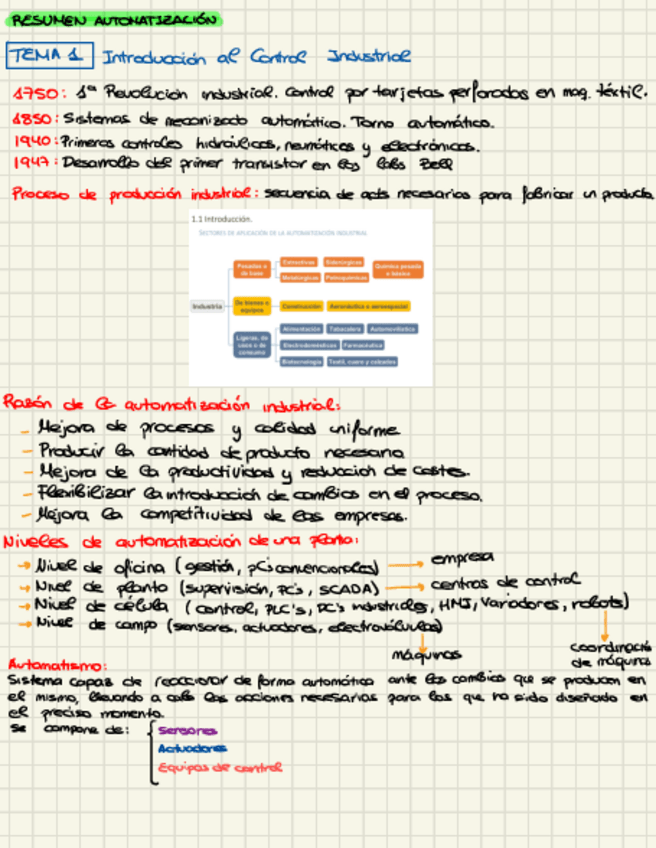 RESUMEN AUTOMATIZACIÓN
TEMA 1 Introducción al Control Industrial
1750: 1ª Revolución industrial. Control por tarjetas perforadas en maq. téxtil.
1850: Sistemas de mecanizado automático. Torno automático.
1940: Primeros controles hidráulicos, neumáticos y electrónicos.
1947: Desarrollo del primer transistor en los labs Bell
Proceso de producción industrial: secuencia de acts necesarias para fabricar un producto
1.1 Introducción.
SECTORES DE APLICACIÓN DE LA AUTOMATIZACIÓN INDUSTRIAL
Industria
Pesadas o de base
Extractivas
Siderúrgicas
Metalúrgicas
Petroquímicas
Química pesada o básica
De bienes o equipos
Construcción
Aeronáutica o aeroespacial
Ligeras, de uso o de consumo
Alimentación
Tabacalera
Automovilística
Electrodomésticos
Farmacéutica
Biotecnología
Textil, cuero y calzados
Razón de la automatización industrial:
- Mejora de procesos y calidad uniforme
- Producir la cantidad de producto necesaria
- Mejora de la productividad y reducción de costes.
- Flexibilizar la introducción de cambios en el proceso.
- Mejora la competitividad de las empresas.
Niveles de automatización de una planta:
→ Nivel de oficina (gestión, pC's convencionales) → empresa
→ Nivel de planta (supervisión, PC's, SCADA) → centros de control
→ Nivel de célula (control, PLC's, PC's industriales, HMI, Variadores, robots)
→ Nivel de campo (sensores, actuadores, electroválvulas)
máquinas
coordinación de máquina
Automatismo:
Sistema capaz de reaccionar de forma automática ante los cambios que se producen en
el mismo, llevando a cabo las acciones necesarias para las que ha sido diseñado en
el preciso momento.
Se compone de:
Sensores
Actuadores
Equipos de control